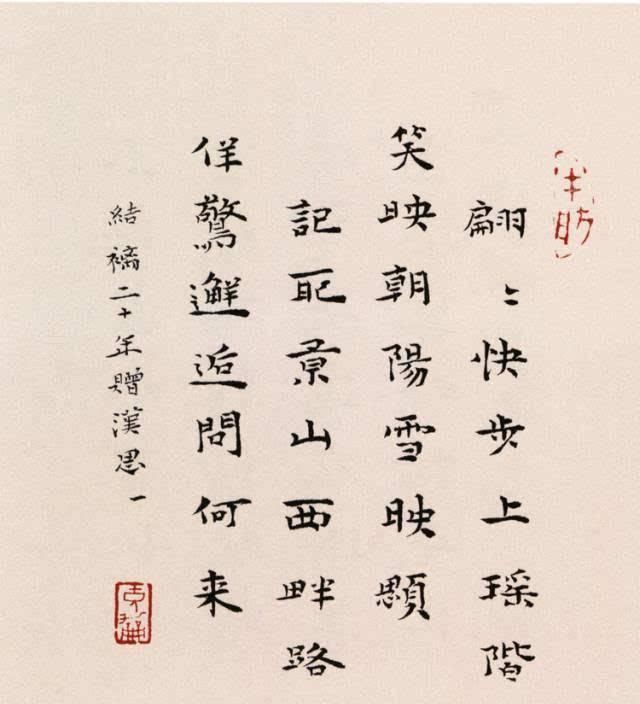 翩〻快步上瑶階
笑映朝陽雪映顋
記取景山西畔路
佯驚邂逅問何来
結褵二十年贈漢思 一